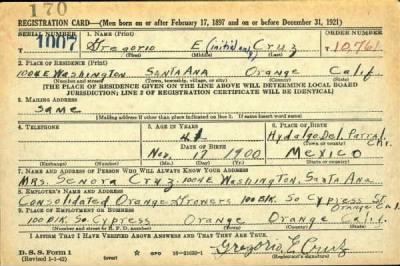 170
REGISTRATION CARD—(Men born on or after February 17, 1897 and on or before December 31, 1921)
SERIAL NUMBER 1. NAME (Print) ORDER NUMBER
1007 Gregorio E (initial only) Cruz T 10,761
(First) (Middle) (Last)
2. PLACE OF RESIDENCE (Print)
1001 E Washington Santa Ana Orange Calif.
(Number and street) (Town, township, village, or city) (County) (State)
[THE PLACE OF RESIDENCE GIVEN ON THE LINE ABOVE WILL DETERMINE LOCAL BOARD
JURISDICTION; LINE 2 OF REGISTRATION CERTIFICATE WILL BE IDENTICAL]
3. MAILING ADDRESS
Same
[Mailing address if other than place indicated on line 2. If same insert word same]
4. TELEPHONE 5. AGE IN YEARS 6. PLACE OF BIRTH
41 Hydalgo Del Parral,
DATE OF BIRTH Chi.
Nov. 17 1900 Mexico
(Exchange) (Number) (Mo.) (Day) (Yr.) (State or country)
7. NAME AND ADDRESS OF PERSON WHO WILL ALWAYS KNOW YOUR ADDRESS
Mrs. Senora Cruz, E Washington, Santa Ana
8. EMPLOYER'S NAME AND ADDRESS Orange Cal.
Consolidated Orange Growers 100 Blk. So Cypress St
9. PLACE OF EMPLOYMENT OR BUSINESS
100 Blk. So. Cypress Orange Orange Calif.
(Number and street or R. F. D. number) (Town) (County) (State)
I AFFIRM THAT I HAVE VERIFIED ABOVE ANSWERS AND THAT THEY ARE TRUE.
D. S. S. Form 1
(Revised 1-1-42) (over) GPO 16—21630-1 Gregorio E Cruz